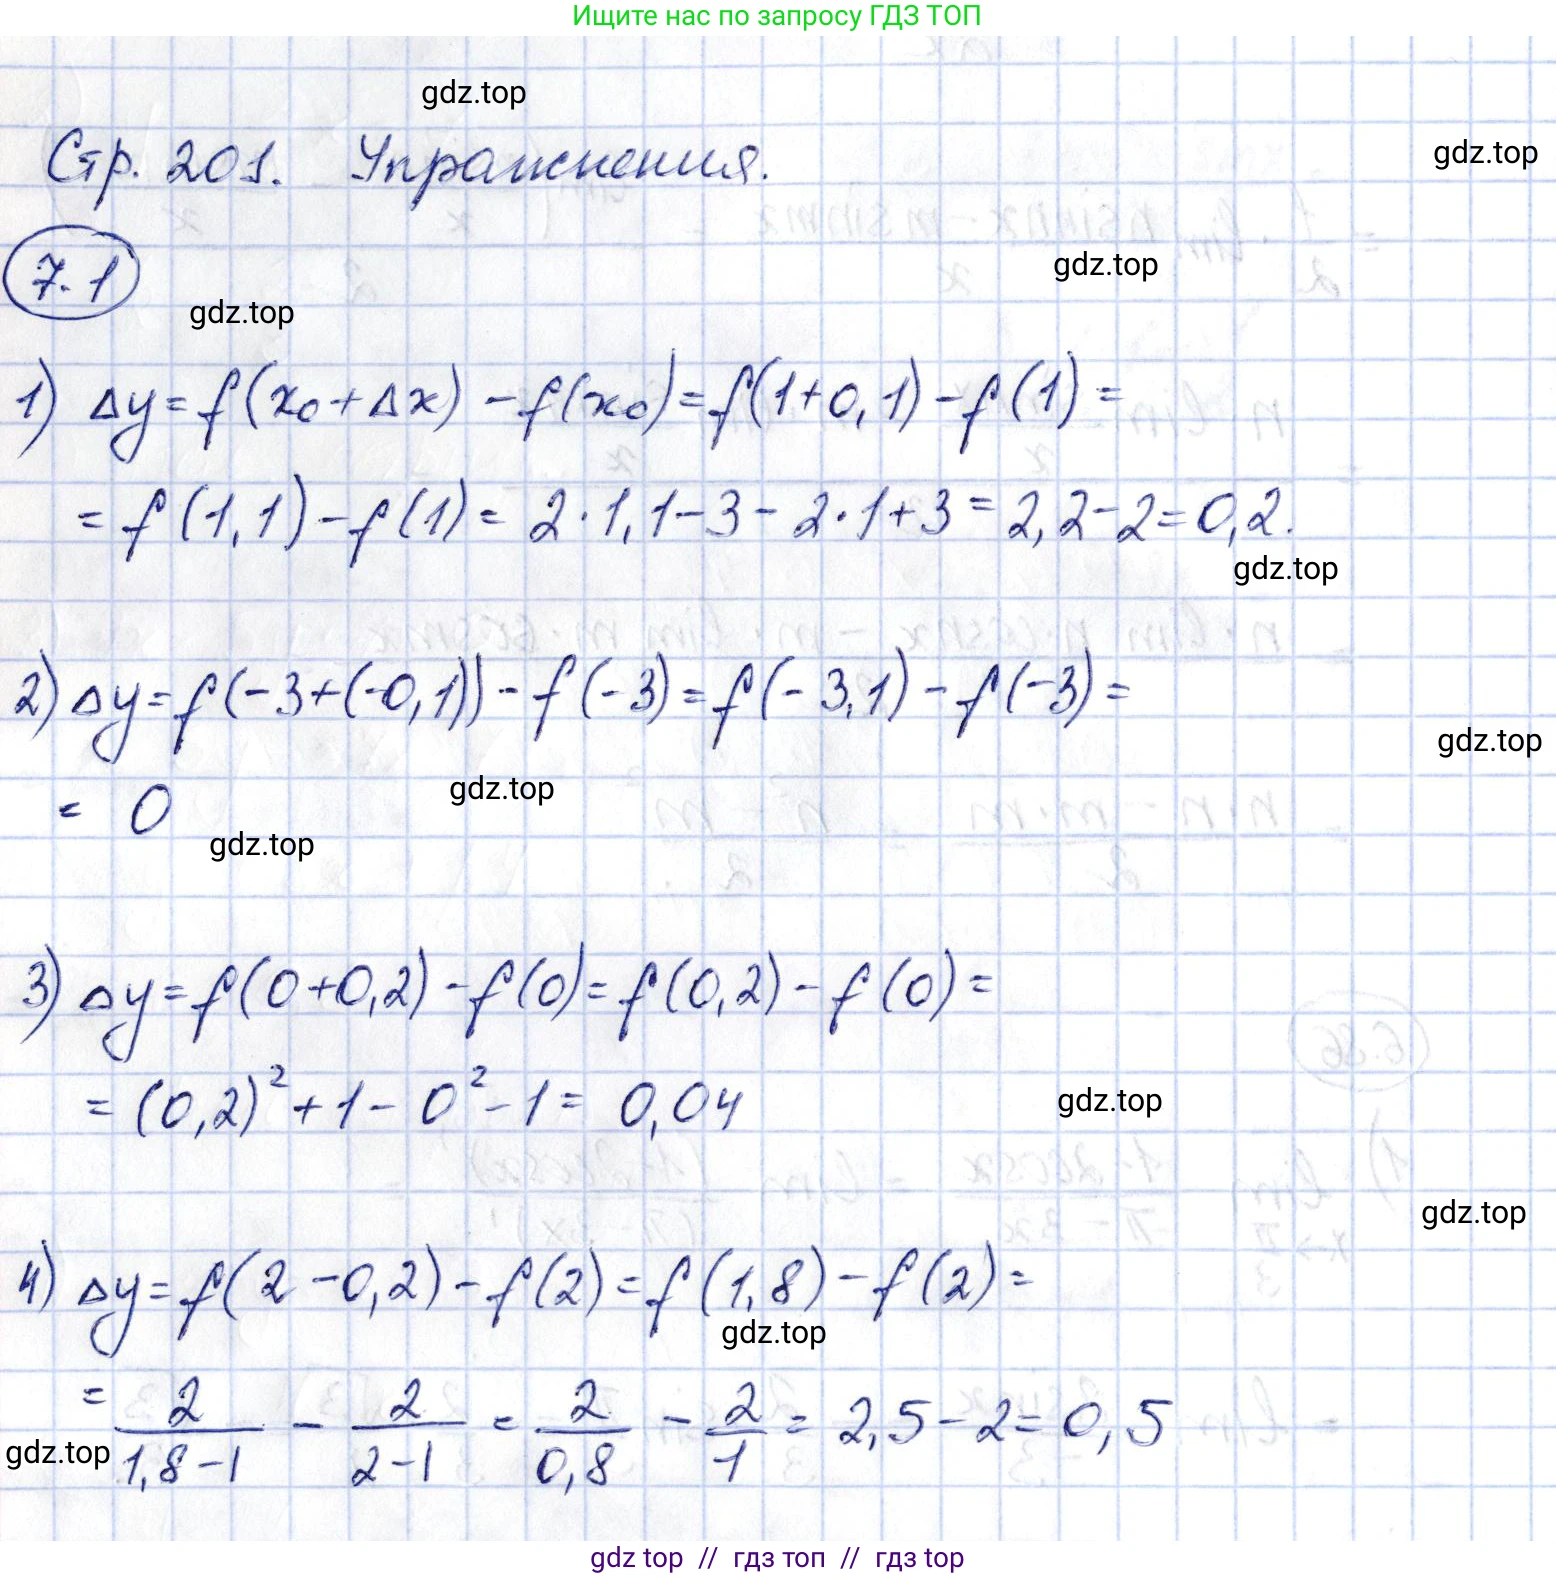 Ищите нас по запросу ГДЗ ТОП
gdz.top
Стр. 201. Упражнения.
gdz.top
7.1
gdz.top
gdz.top
1) Δy = f(x₀ + Δx) - f(x₀) = f(1+0,1) - f(1) =
= f(1,1) - f(1) = 2·1,1 - 3 - 2·1 + 3 = 2,2 - 2 = 0,2.
gdz.top
2) Δy = f(-3+(-0,1)) - f(-3) = f(-3,1) - f(-3) =
gdz.top
= 0
gdz.top
gdz.top
3) Δy = f(0+0,2) - f(0) = f(0,2) - f(0) =
= (0,2)² + 1 - 0² - 1 = 0,04
gdz.top
gdz.top
4) Δy = f(2-0,2) - f(2) = f(1,8) - f(2) =
gdz.top
= 2/(1,8-1) - 2/(2-1) = 2/0,8 - 2/1 = 2,5 - 2 = 0,5
gdz.top
gdz top // гдз топ // гдз top